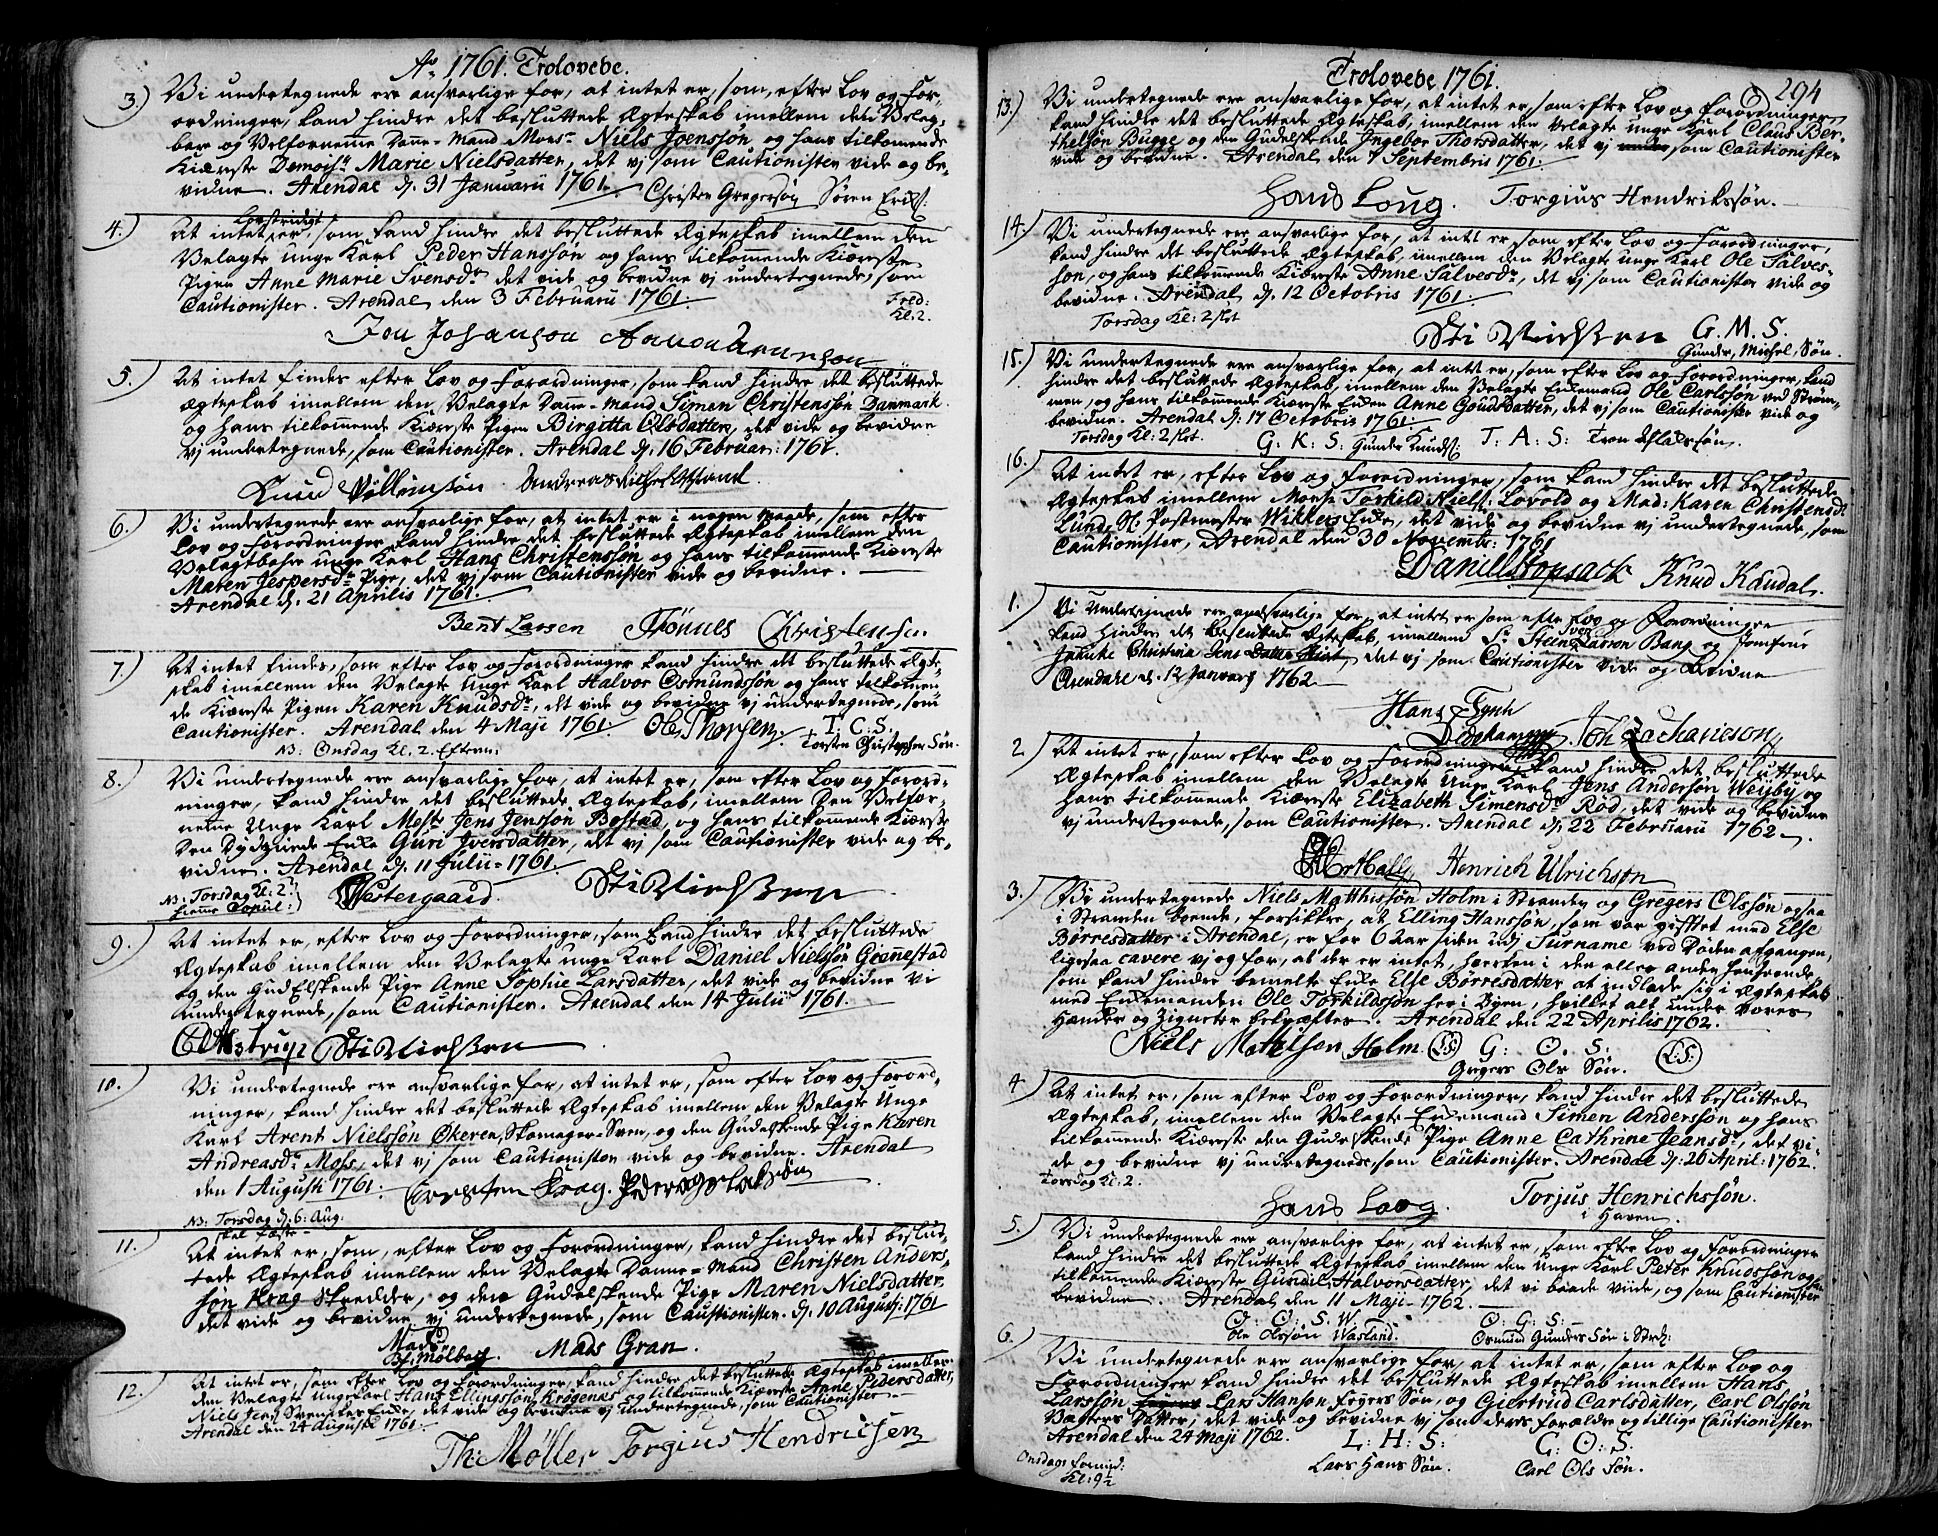 Ao 1761. Trolovede.
3.) Vi undertegnede ere answarlige for, at intet er, som, efter Lov og For-
ordninger, kand hindre det besluttede Ægteskab imellem den Velag-
bar og Velfornemme Danne-Mand Monsr Niels Joenssøn og hans tilkommende
Kiærste Demoisle Marie Nielsdatter, det vj som Cautionister vide og be-
vidne. Arendal d. 31 Januarii 1761.
Christen Gregersøn Søren Erichs:
4.) At intet Lovstridigt er, som kand hindre det besluttede Ægteskab imellem den
Velagte unge Karl Peder Hanssøn og hans tilkommende Kiærste
Pigen Anne Marie Svensdr det vide og bevidne vj undertegnede, som
Cautionister. Arendal den 3 Februarii 1761.
Fred:
Kl: 2.
Jon Johanson
5.) At intet findes efter Lov og Forordninger, som kand hindre det besluttede
Ægteskab imellem den Velagte Danne-Mand Simon Christenssøn Danmark
og hans tilkommende Kiærste Pigen Birgitta Olsdatter, det vide og bevidne
vj undertegnede, som Cautionister. Arendal d. 16 Februar: 1761.
Knud
6.) Vi undertegnede ere answarlige for, at intet er i nogen Maade, som efter
Lov og Forordninger kand hindre det besluttede Ægteskab imellem den
Velagtbahr unge Karl Hans Christenssøn og hans tilkommende Kiærste
Maren Jespersdr Pige, det vj som Cautionister vide og bevidne.
Arendal d. 21 Aprilis 1761.
Bent Larsen Tönnes Christensen
7.) At intet findes, som efter Lov og Forordninger kand hindre det besluttede Ægte-
skab imellem den Velagte Unge Karl Halvor Osmundssøn og hans tilkommen-
de Kiærste Pigen Karen Knudsdr, det vide og bevidne vj undertegnede, som
Cautionister. Arendal den 4 Maji 1761. Ole Thorsen T. C. S.
NB: Onsdag Kl. 2. Efterm: Torsten Christopher Søn.
8.) Vi undertegnede ere answarlige for, at intet er, som efter Lov og Forord-
ninger, kand hindre det besluttede Ægteskab, imellem Den Velfor-
nemme Unge Karl Mestr Jens Jenssøn Bostad, og hans tilkommende Kiærste
Den Dydziirede Enke Guri Iversdatter, det vj som Cautionister vide og be-
vidne. Arendal d. 11 Julii 1761.
NB: Torsdag Kl. 2.
hiemme Copul:
Westergaard
9.) At intet er, efter Lov og Forordninger, som kand hindre det besluttede
Ægteskab imellem den Velagte unge Karl Daniel Nielssøn Grønnestad
og den GudElskende Pige Anne Sophie Larsdatter, det vide og bevidne vi
undertegnede, som Cautionister. Arendal den 14 Julii 1761.
10.) Vi undertegnede ere answarlige for, at intet er, som efter Lov og Forord-
ninger, kand hindre det besluttede Ægteskab imellem den Velagte Unge
Karl Arent Nielssøn Økeren, Skomager-Sven, og den Gudelskende Pige Karen
Andreasdr Moss, det vj som Cautionister vide og bevidne. Arendal
den 1 Augusti 1761.
NB: Torsdag d. 6: Aug.
11.) At intet er, som, efter Lov og Forordninger, kand hindre det beslut-
tede Ægteskab imellem den Velagte Danne-Mand Christen Anders-
søn Krag Skredder, og den Gudelskende Pige Maren Nielsdatter
det vide og bevidne vj undertegnede, som Cautionister. d. 10 Augustj: 1761
Mads
Mölbach. Mads Gran.
12.) At intet er, som efter Lov og Forordninger, kand hindre det besluttede Ægteskab imellem
den Velagte Unge karl Hans Ellingssøn Krøgenes og tilkommende Kiærste Anne Pedersdatter,
Niels Jens: Svenskes Enke, det vide og bevidne vj undertegnede, som Cautionister
Arendal den 24 Augusti 1761.
Th: Møller Torgius Hendricsen
Trolovede 1761.
294
13.) Vi undertegnede ere answarlige for, at intet er, som efter Lov og Forordninger,
kand hindre det besluttede Ægteskab, imellem den Velagte unge Karl Claus Ber-
thelsøn Bugge og den Gudelskende Ingebor Thorsdatter, det vj som Cautionister
vide og bevidne. Arendal den 7 Septembris 1761.
Hans Loug. Torgius Hendrikssøn.
14.) Vi undertegnede ere answarlige for, at intet er, som efter Lov og Forordninger,
kand hindre det besluttede Ægteskab, imellem den Velagte unge Karl Ole Salves-
søn, og hans tilkommende Kiæreste Anne Salvesdr, det vj som Cautionister vide og
bevidne. Arendal d. 12 Octobris 1761.
Torsdag Kl: 2 slet
G. M. S.
Gunder, Michel, Søn.
15.) Vi undertegnede ere answarlige for, at intet er, som efter Lov og Forordninger, kand
hindre det besluttede Ægteskab, imellem den Velagte Enkemand Ole Carlssøn ved Strøm-
men, og hans tilkommende Kiærste Enken Anne Goudsdatter, det vj som Cautionister vide og
bevidne. Arendal d. 17 Octobris 1761.
Torsdag Kl: 2 slet. G. K. S: Gunder Knuds: T: A: S:
16.) At intet er, efter Lov og Forordninger, som kand hindre det besluttede
Ægteskab imellem Monsr Torkild Niels: Lovold og Mad: Karen Christensdr
Lund, Sl: Postmester Wikkers Enke, det vide og bevidne vj undertegnede, som
Cautionister, Arendal den 30 Novembr: 1761
Daniell Stopsack Knud Kaudal.
1.) Vi Undertegnede ere answarlige for, at intet er som efter Lov og Forordninger
kand hindre det besluttede Ægteskab, imellem Sr Sven Larson Bang og Jomfrue
Christina Jens Datter det vj som Cautionister vide og bevidne
Arendahl d. 12 Januarj 1762
Hans Fynh
2.) At intet er, som efter Lov og Forordninger, kand hindre det besluttede
Ægteskab imellem den Velagte Unge Karl Jens Anderssøn Weyby og
hans tilkommende Kiærste Elizabeth Simensdr Röd, det vide og bevidne
vj undertegnede, som Cautionister. Arendal d. 22 Februarii 1762.
Henrich Ulrichson
3.) Vi undertegnede Niels Matthissøn Holm i Stranden og Gregers Olssøn ogsaa
i Stranden boende, forsikkre, at Elling Hanssøn, som var gifftet med Else
Børresdatter i Arendal, er for 6 Aar siden udj Surname ved Døden afgangen,
ligesaa cavere vj og for, at der er intet, hverken i den eller anden henseende
som kand hindre bemelte Enke Else Børresdatter at indlade sig i Ægteskab
med Enkemanden Ole Torkildssøn her i Byen, hvilket alt under vores
Hænder og Zigneter bekræftes. Arendal den 22 Aprilis 1762.
Niels Mathison Holm (L.S.) G: O: S: (L.S.)
Gregers Ols Søn.
4.) At intet er, som efter Lov og Forordninger, kand hindre det besluttede
Ægteskab, imellem den Velagte Enkemand Simen Anderssøn og hans
tilkommende Kiærste den Gudelskende Pige Anne Cathrine Jeansdr, det vi-
de og bevidne vj undertegnede, som Cautionister. Arendal d. 26 April: 1762.
Torsdag Kl: 2.
Hans Loug. Torjus Henrichssøn.
i Haven
5.) Vi undertegnede ere answarlige for, at intet er, som efter Lov og Forordninger
kand hindre det besluttede Ægteskab, imellem den Unge Karl Peter Knudssøn og hans
tilkommende Kiærste Gunnil Halvorsdatter, det vi baade vide, og som Cautionister
bevidne. Arendal den 11 Maji 1762.
O: O: S: W: O: G: S:
Ole Olssøn Wasland. Osmund Gunders Søn i Strck:
6.) Vi undertegnede ere answarlige for, at intet er, som efter Lov og
Forordninger kand hindre det besluttede Ægteskab imellem Hans
Larssøn Lars Hanson Søn, og Giertrud Carlsdatter, Carl Olssøn
Datter, det vide og bevidne vj som deres forældre og tillige Cautionister
Arendal den 24 Maji 1762. L: H: S: G: O: S.
Onsdags formid: Lars Hans Søn. Carl Ols Søn.
Kl: 9½